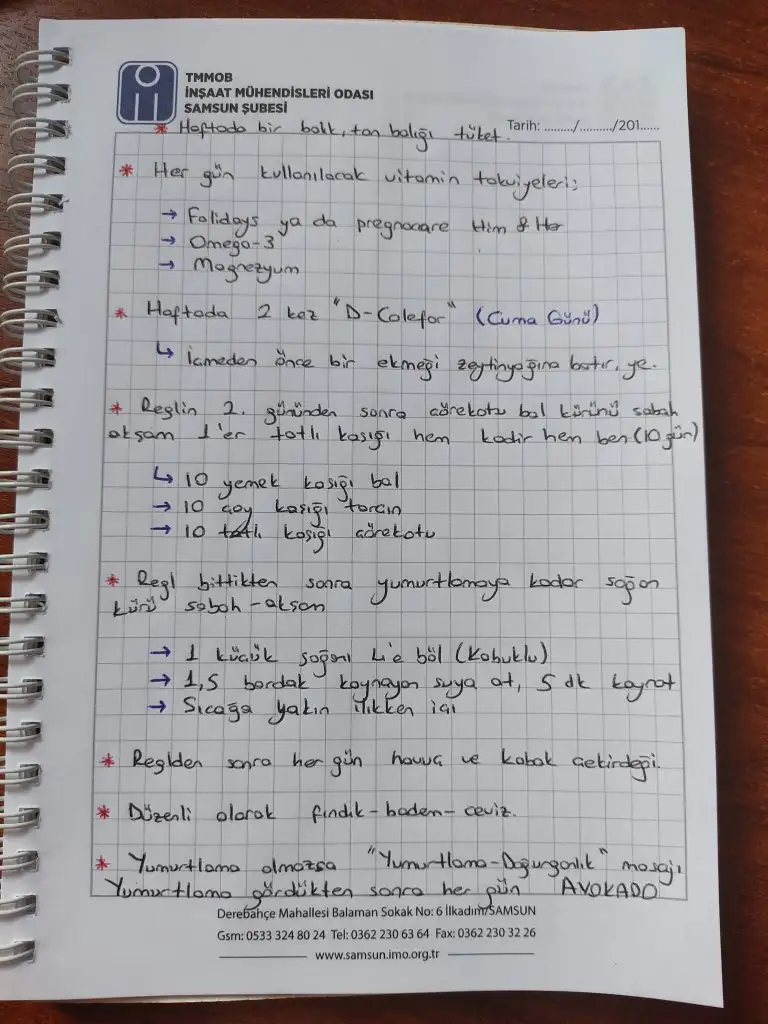 TMMOB
İNŞAAT MÜHENDİSLERİ ODASI
SAMSUN ŞUBESİ
Tarih: ........./........../201......
* Haftada bir balık, ton balığı tüket.
* Her gün kullanılacak vitamin takviyeleri;
→ Folidays ya da pregnacare Him & Her
→ Omega-3
→ Magnezyum
* Haftada 2 kez "D-Colefor" (Cuma Günü)
↳ İçmeden önce bir ekmeği zeytinyağına batır, ye.
* Reglin 2. gününden sonra çörekotu bal kürünü sabah
akşam 1'er tatlı kaşığı hem kadir hem ben (10 gün)
↳ 10 yemek kaşığı bal
→ 10 çay kaşığı tarçın
→ 10 tatlı kaşığı çörekotu
* Regl bittikten sonra yumurtlamaya kadar soğan
kürü sabah-akşam
→ 1 küçük soğanı 4'e böl (Kabuklu)
→ 1,5 bardak kaynayan suya at, 5 dk kaynat
→ Sıcağa yakın ılıkken iç!
* Reglden sonra her gün havuç ve kabak çekirdeği.
* Düzenli olarak fındık-badem-ceviz.
* Yumurtlama olmazsa "Yumurtlama-Doğurganlık" masajı
Yumurtlama gördükten sonra her gün AVOKADO
Derebahçe Mahallesi Balaman Sokak No: 6 İlkadım/SAMSUN
Gsm: 0533 324 80 24 Tel: 0362 230 63 64 Fax: 0362 230 32 26
www.samsun.imo.org.tr